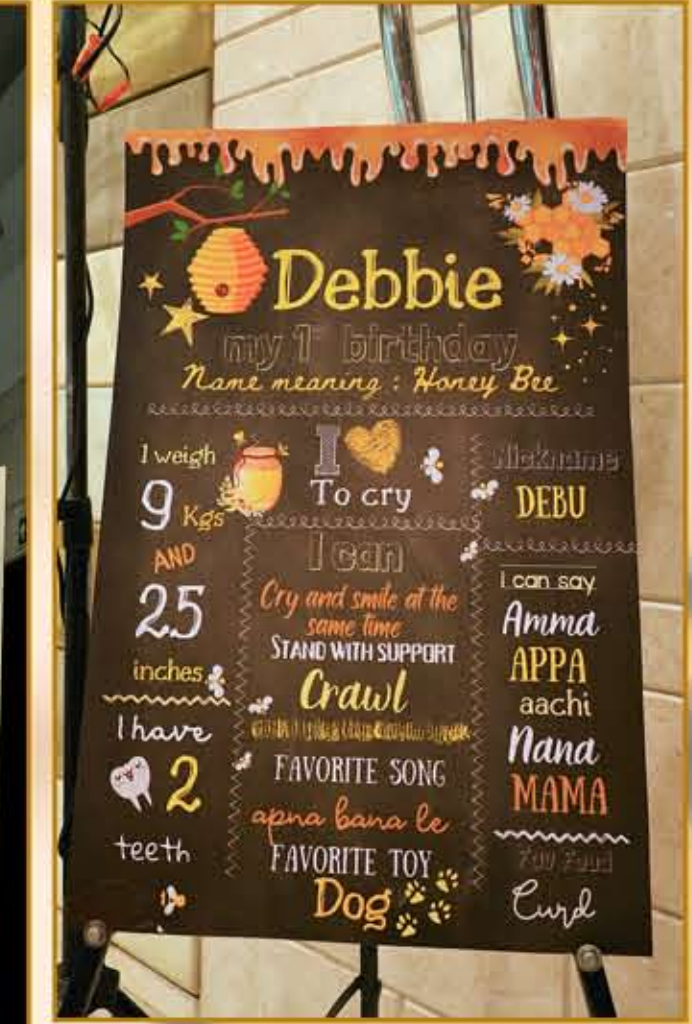 Debbie
my 1st birthday
Name meaning : Honey Bee
I weigh
9 Kgs
AND
25
inches
I have
2
teeth
I
To cry
I can
Cry and smile at the
same time
STAND WITH SUPPORT
Crawl
FAVORITE SONG
apna bana le
FAVORITE TOY
Dog
Nickname
DEBU
I can say
Amma
APPA
aachi
Nana
MAMA
Fav Food
Curd